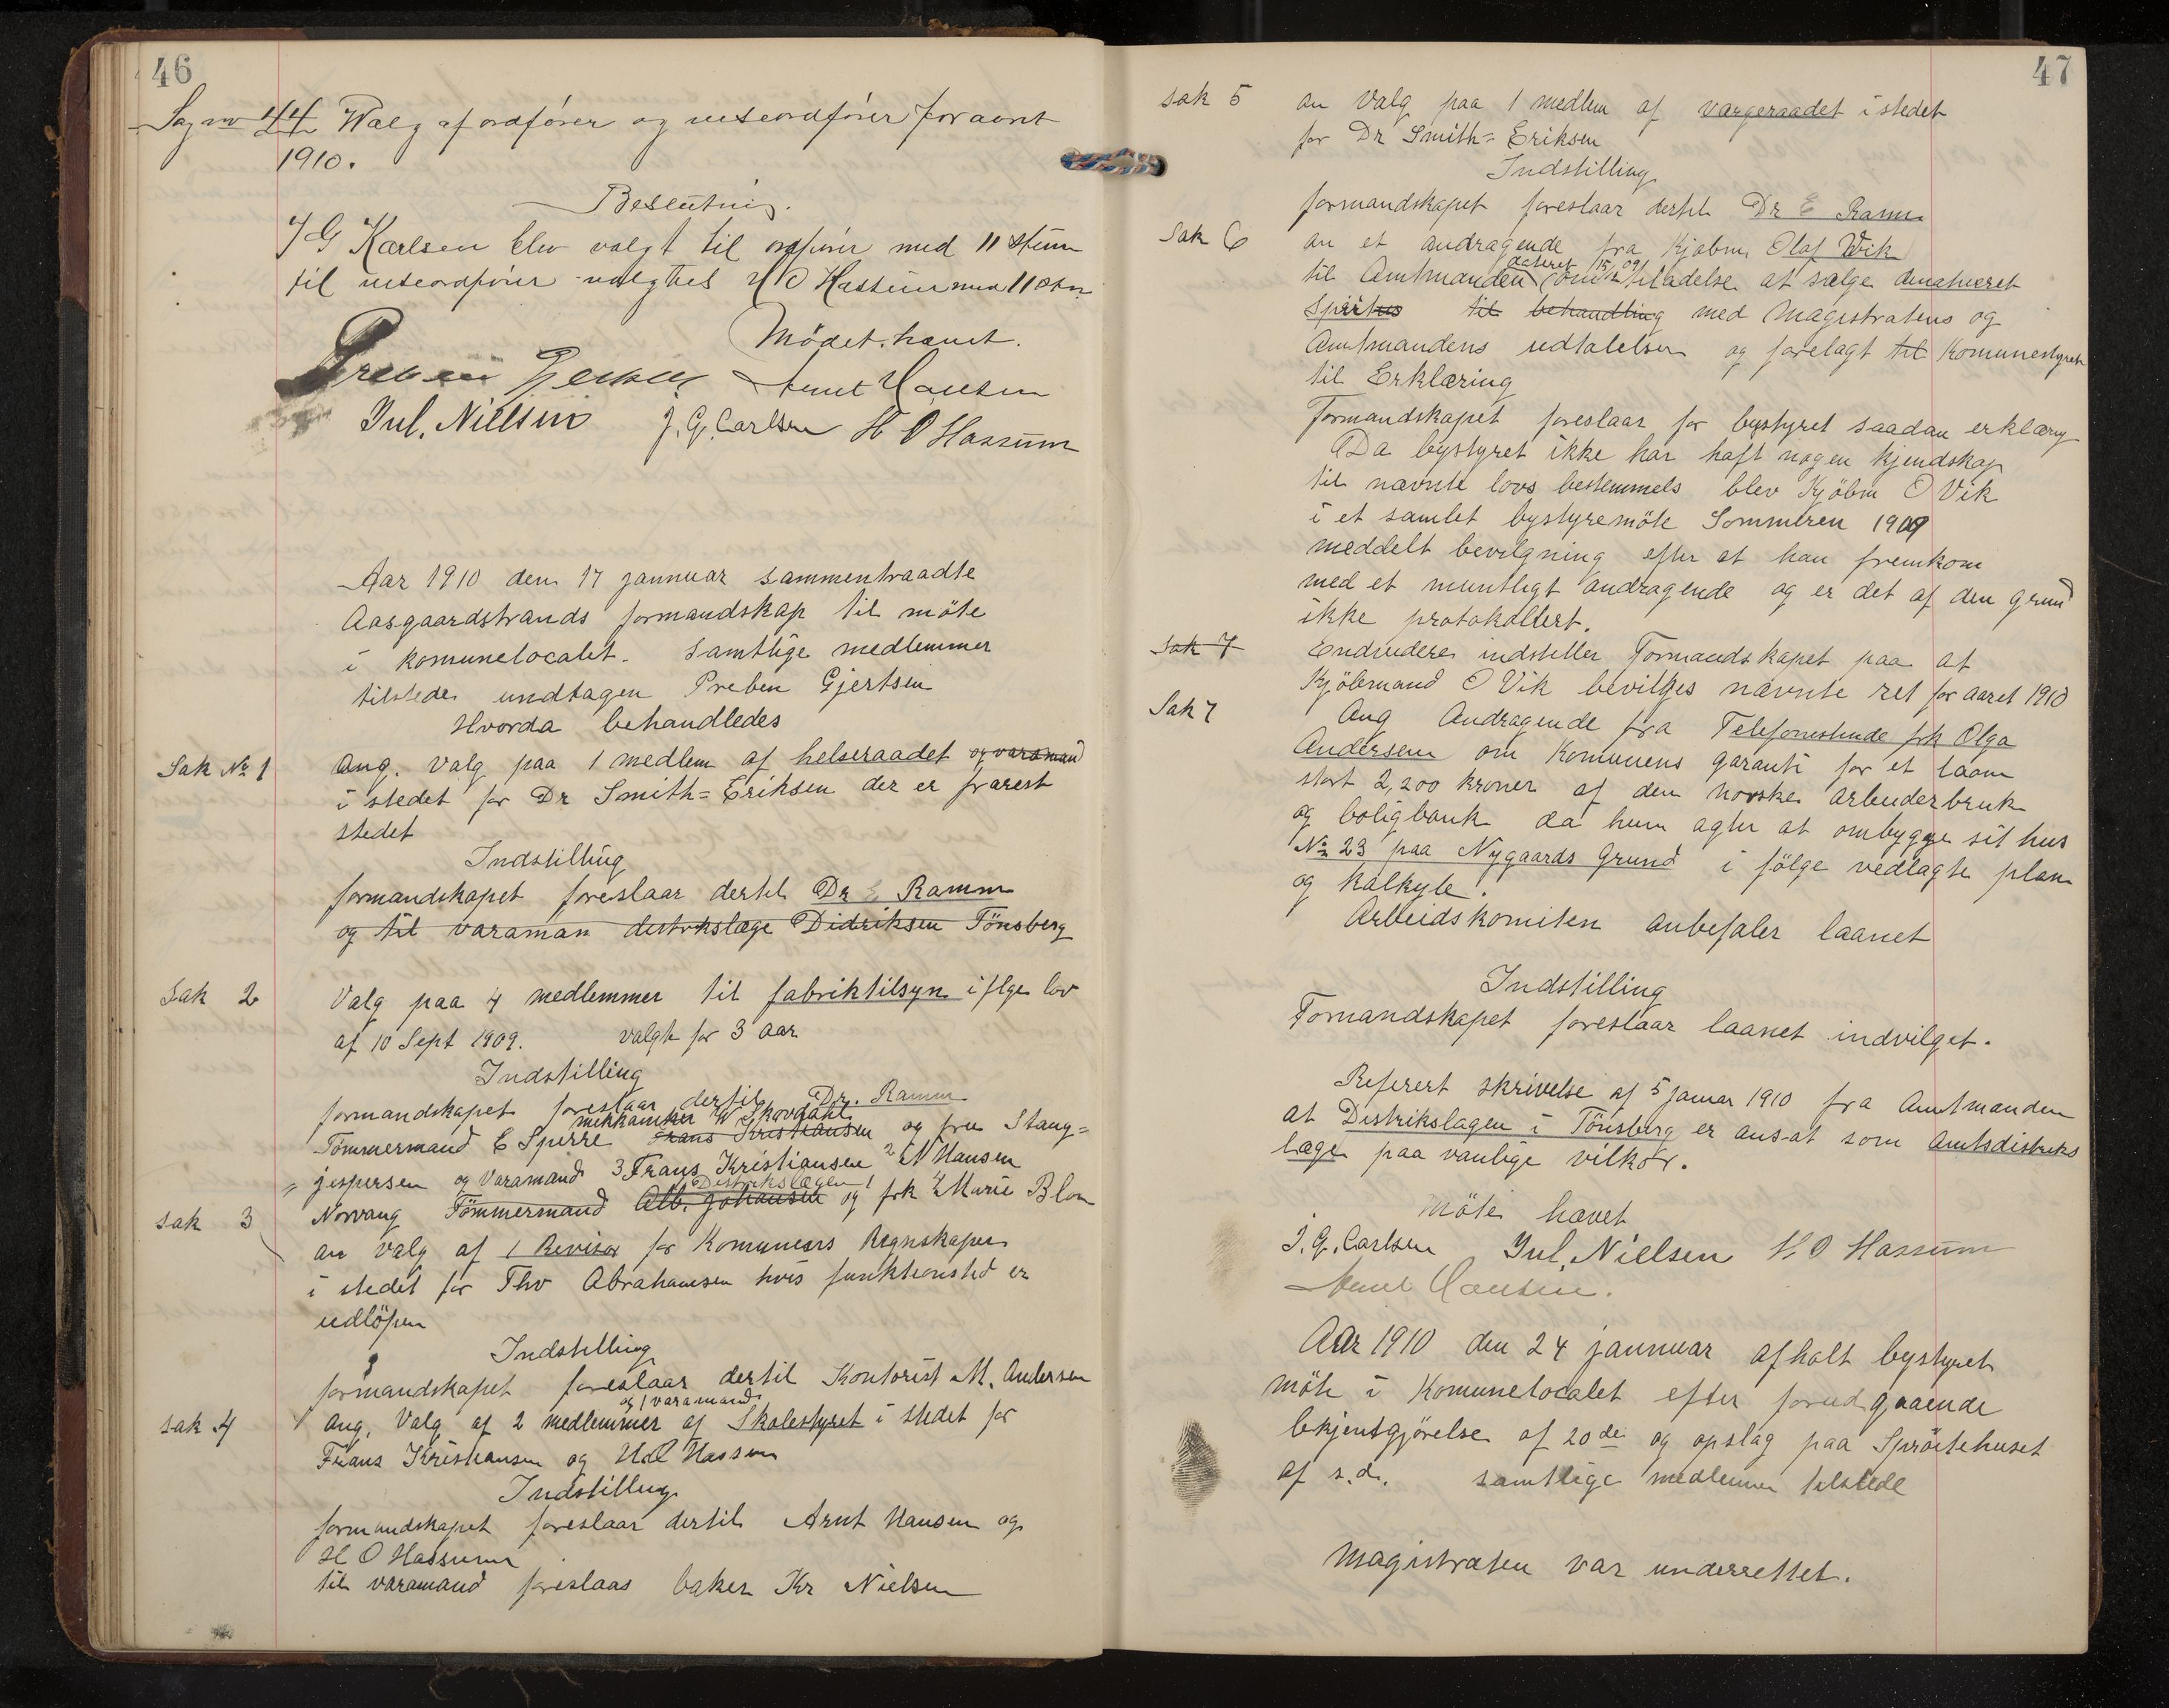 46
Sag nr 44 Valg af ordfører og viseordfører for aaret
1910.
Beslutning.
J G Karlsen blev valgt til ordfører med 11 stem
til viseordfører valgtes H O Hassum med 11 stm
Mödet hævet.
Preben Gjertsen Arnt Hansen
Jul. Nielsen J. G. Carlsen H O Hassum
Aar 1910 den 17 jannuar sammentraadte
Aasgaardstrands formandskap til möte
i komunelocalet. Samtlige medlemmer
tilstede undtagen Preben Gjertsen
Hvorda behandledes
Sak No 1 Ang. valg paa 1 medlem af helseraadet og varamand
i stedet for Dr Smith=Eriksen der er frareist
stedet
Indstilling
formandskapet foreslaar dertil Dr E Ramm
og til varaman distrikslæge Didriksen Tönsberg
Sak 2 Valg paa 4 medlemmer til fabriktilsyn iflge lov
af 10 Sept 1909. valgt for 3 aar
Indstilling
formandskapet foreslaar dertil Dr. Ramm
mekkaniker W Skovdahl
Tömmermand E Sperre Frans Kristiansen og fru Stang=
= jespersen og Varamand 3 Frans Kristiansen 2 N Hansen
Distrikslægen 1
Norvang Tömmermand Alb. Johansen og frk 4 Marie Blom
Sak 3 an valg af 1 Revisor for Komunens Regnskaper
i stedet for Thv Abrahamsen hvis funktionstid er
udlöpen
Indstilling
formandskapet foreslaar dertil Kontorist M. Andersen
og 1 varamand
sak 4 Ang. Valg af 2 medlemmer af Skolestyret i stedet for
Frans Kristiansen og H O Hassum
Indstilling
formandskapet foreslaar dertil Arnt Hansen og
H O Hassum
til varamand foreslaas baker Kr Nielsen
47
sak 5 an Valg paa 1 medlem af vargeraadet i stedet
for Dr Smith=Eriksen
Indstilling
formandskapet foreslaar dertil Dr E Ramm
Sak 6 an et andragende fra Kjøbm. Olaf Wik
dateret 15/12 09
til Amtmanden om tiladelse at sælge denatueret
Spiritus til behandling med Magistratens og
Amtmandens udtalelser og forelagt til Komunestyret
til Erklæring
Formandskapet foreslaar for bystyret saadan erklæng
Da bystyret ikke har haft nogen kjendskap
til nævnte lovs bestemmels blev Kjöbm O Vik
i et samlet bystyremöte Sommeren 1909
meddelt bevilgning efter at han fremkom
med et muntligt andragende og er det af den grund
ikke protokollert.
sak 7 Endvidere indstiller Formandskapet paa at
Kjöbmand O Vik bevilges nævnte ret for aaret 1910
Sak 7 Ang Andragende fra Telefonestinde frk Olga
Andersen om Komunens garanti for et laan
stort 2,200 kroner af den norske arbeiderbruk
og boligbank da hun agter at ombygge sit hus
No 23 paa Nygaards Grund i fölge vedlagte plan
og kalkyle.
Arbeidskomiten anbefaler laanet
Indstilling
Formandskapet foreslaar laanet indvilget.
Referert skrivelse af 5 januar 1910 fra Amtmanden
at Distrikslægen i Tönsberg er ansat som Amtsdistriks
læge paa vanlige vilkor.
möte hævet
J. G. Carlsen Jul. Nielsen H. O Hassum
Arnt Hansen.
Aar 1910 den 24 jannuar afholt bystyret
möte i Komunelocalet efter forudgaaende
bekjentgjörelse af 20de og opslag paa Spröitehuset
af s.d. samtlige medlemmer tilstede
Magistraten var underrettet.